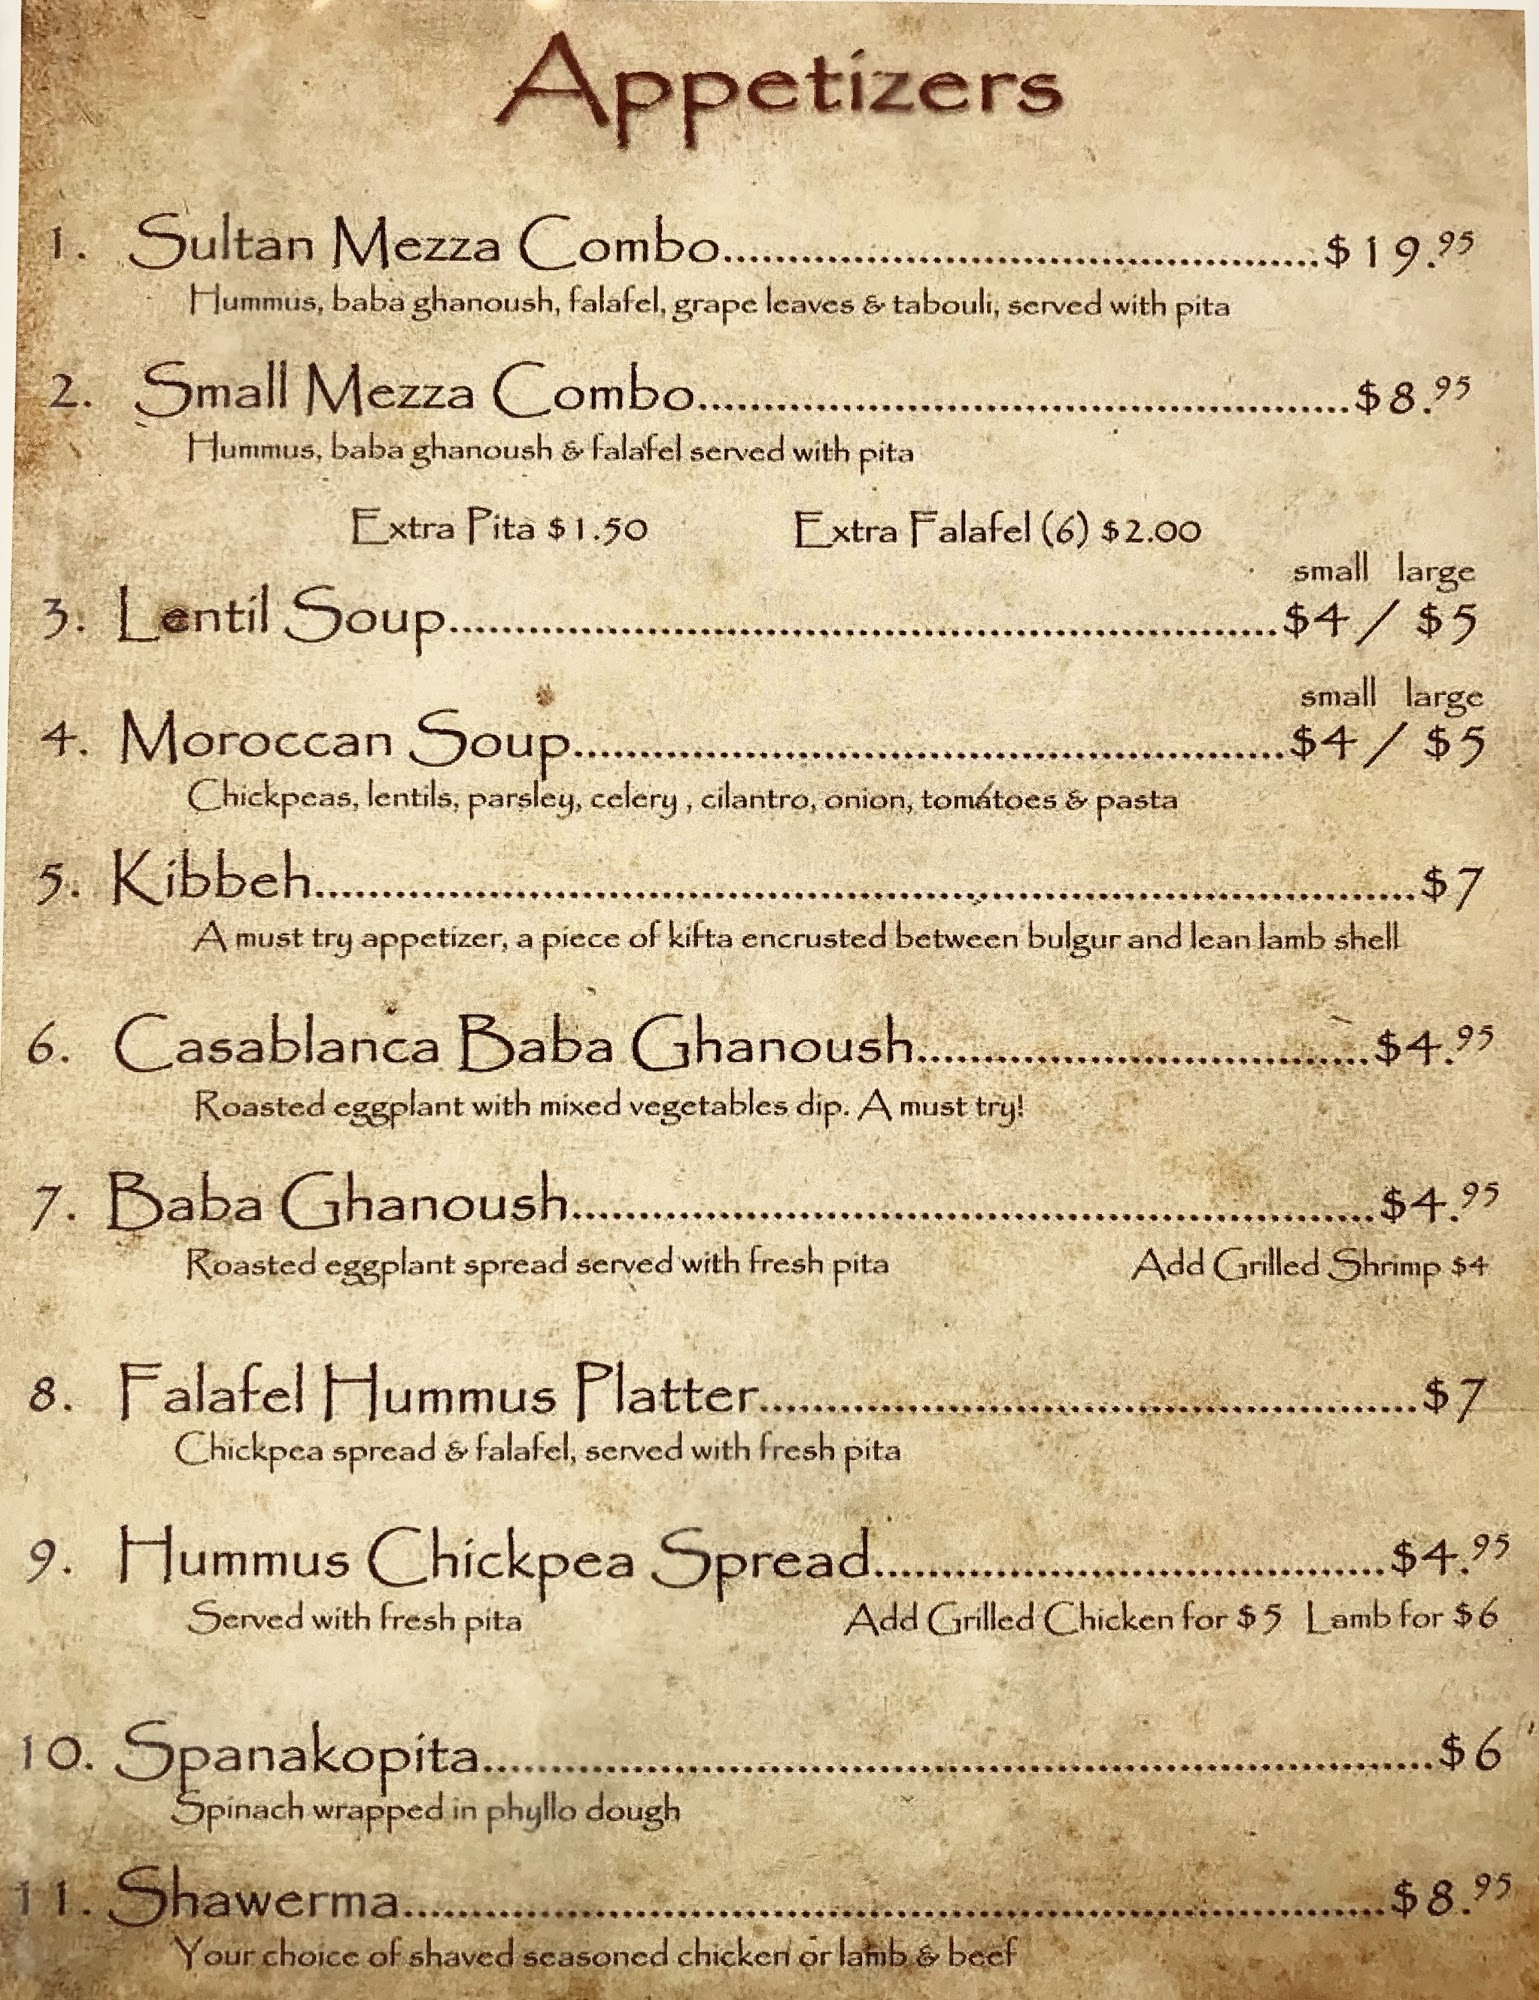 Appetizers
1. Sultan Mezza Combo.............................................$19.95
Hummus, baba ghanoush, falafel, grape leaves & tabouli, served with pita
2. Small Mezza Combo.................................................$8.95
Hummus, baba ghanoush & falafel served with pita
Extra Pita $1.50 Extra Falafel (6) $2.00
small large
3. Lentil Soup..............................................................$4 / $5
small large
4. Moroccan Soup.....................................................$4 / $5
Chickpeas, lentils, parsley, celery , cilantro, onion, tomatoes & pasta
5. Kibbeh...................................................................................$7
A must try appetizer, a piece of kifta encrusted between bulgur and lean lamb shell
6. Casablanca Baba Ghanoush..................................$4.95
Roasted eggplant with mixed vegetables dip. A must try!
7. Baba Ghanoush............................................................$4.95
Roasted eggplant spread served with fresh pita Add Grilled Shrimp $4
8. Falafel Hummus Platter.................................................$7
Chickpea spread & falafel, served with fresh pita
9. Hummus Chickpea Spread......................................$4.95
Served with fresh pita Add Grilled Chicken for $5 Lamb for $6
10. Spanakopita.......................................................................$6
Spinach wrapped in phyllo dough
11. Shawerma..........................................................................$8.95
Your choice of shaved seasoned chicken or lamb & beef